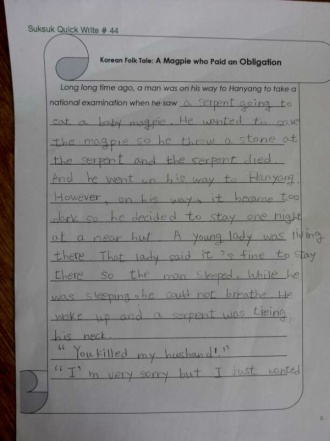 Suksuk Quick Write # 44
Korean Folk Tale: A Magpie who Paid an Obligation
Long long time ago, a man was on his way to Hanyang to take a
national examination when he saw a serpent going to
eat a baby magpie. He wanted to save
the magpie so he throw a stone at
the serpent and the serpent died.
And he went on his way to Hanyang.
However, on his way, it became too
dark so he decided to stay one night
at a near hut. A young lady was living
there. That lady said it's fine to stay
there so the man sleeped. While he
was sleeping, he could not breathe. He
woke up and a serpent was tieing
his neck.
"You killed my husband!"
"I'm very sorry but I just wanted